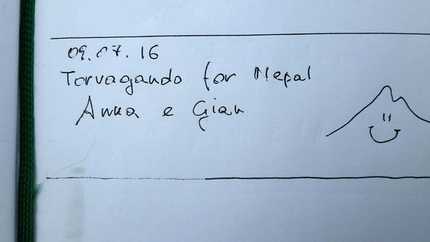 09.07.16
Torvagando for Nepal
Anna e Gian